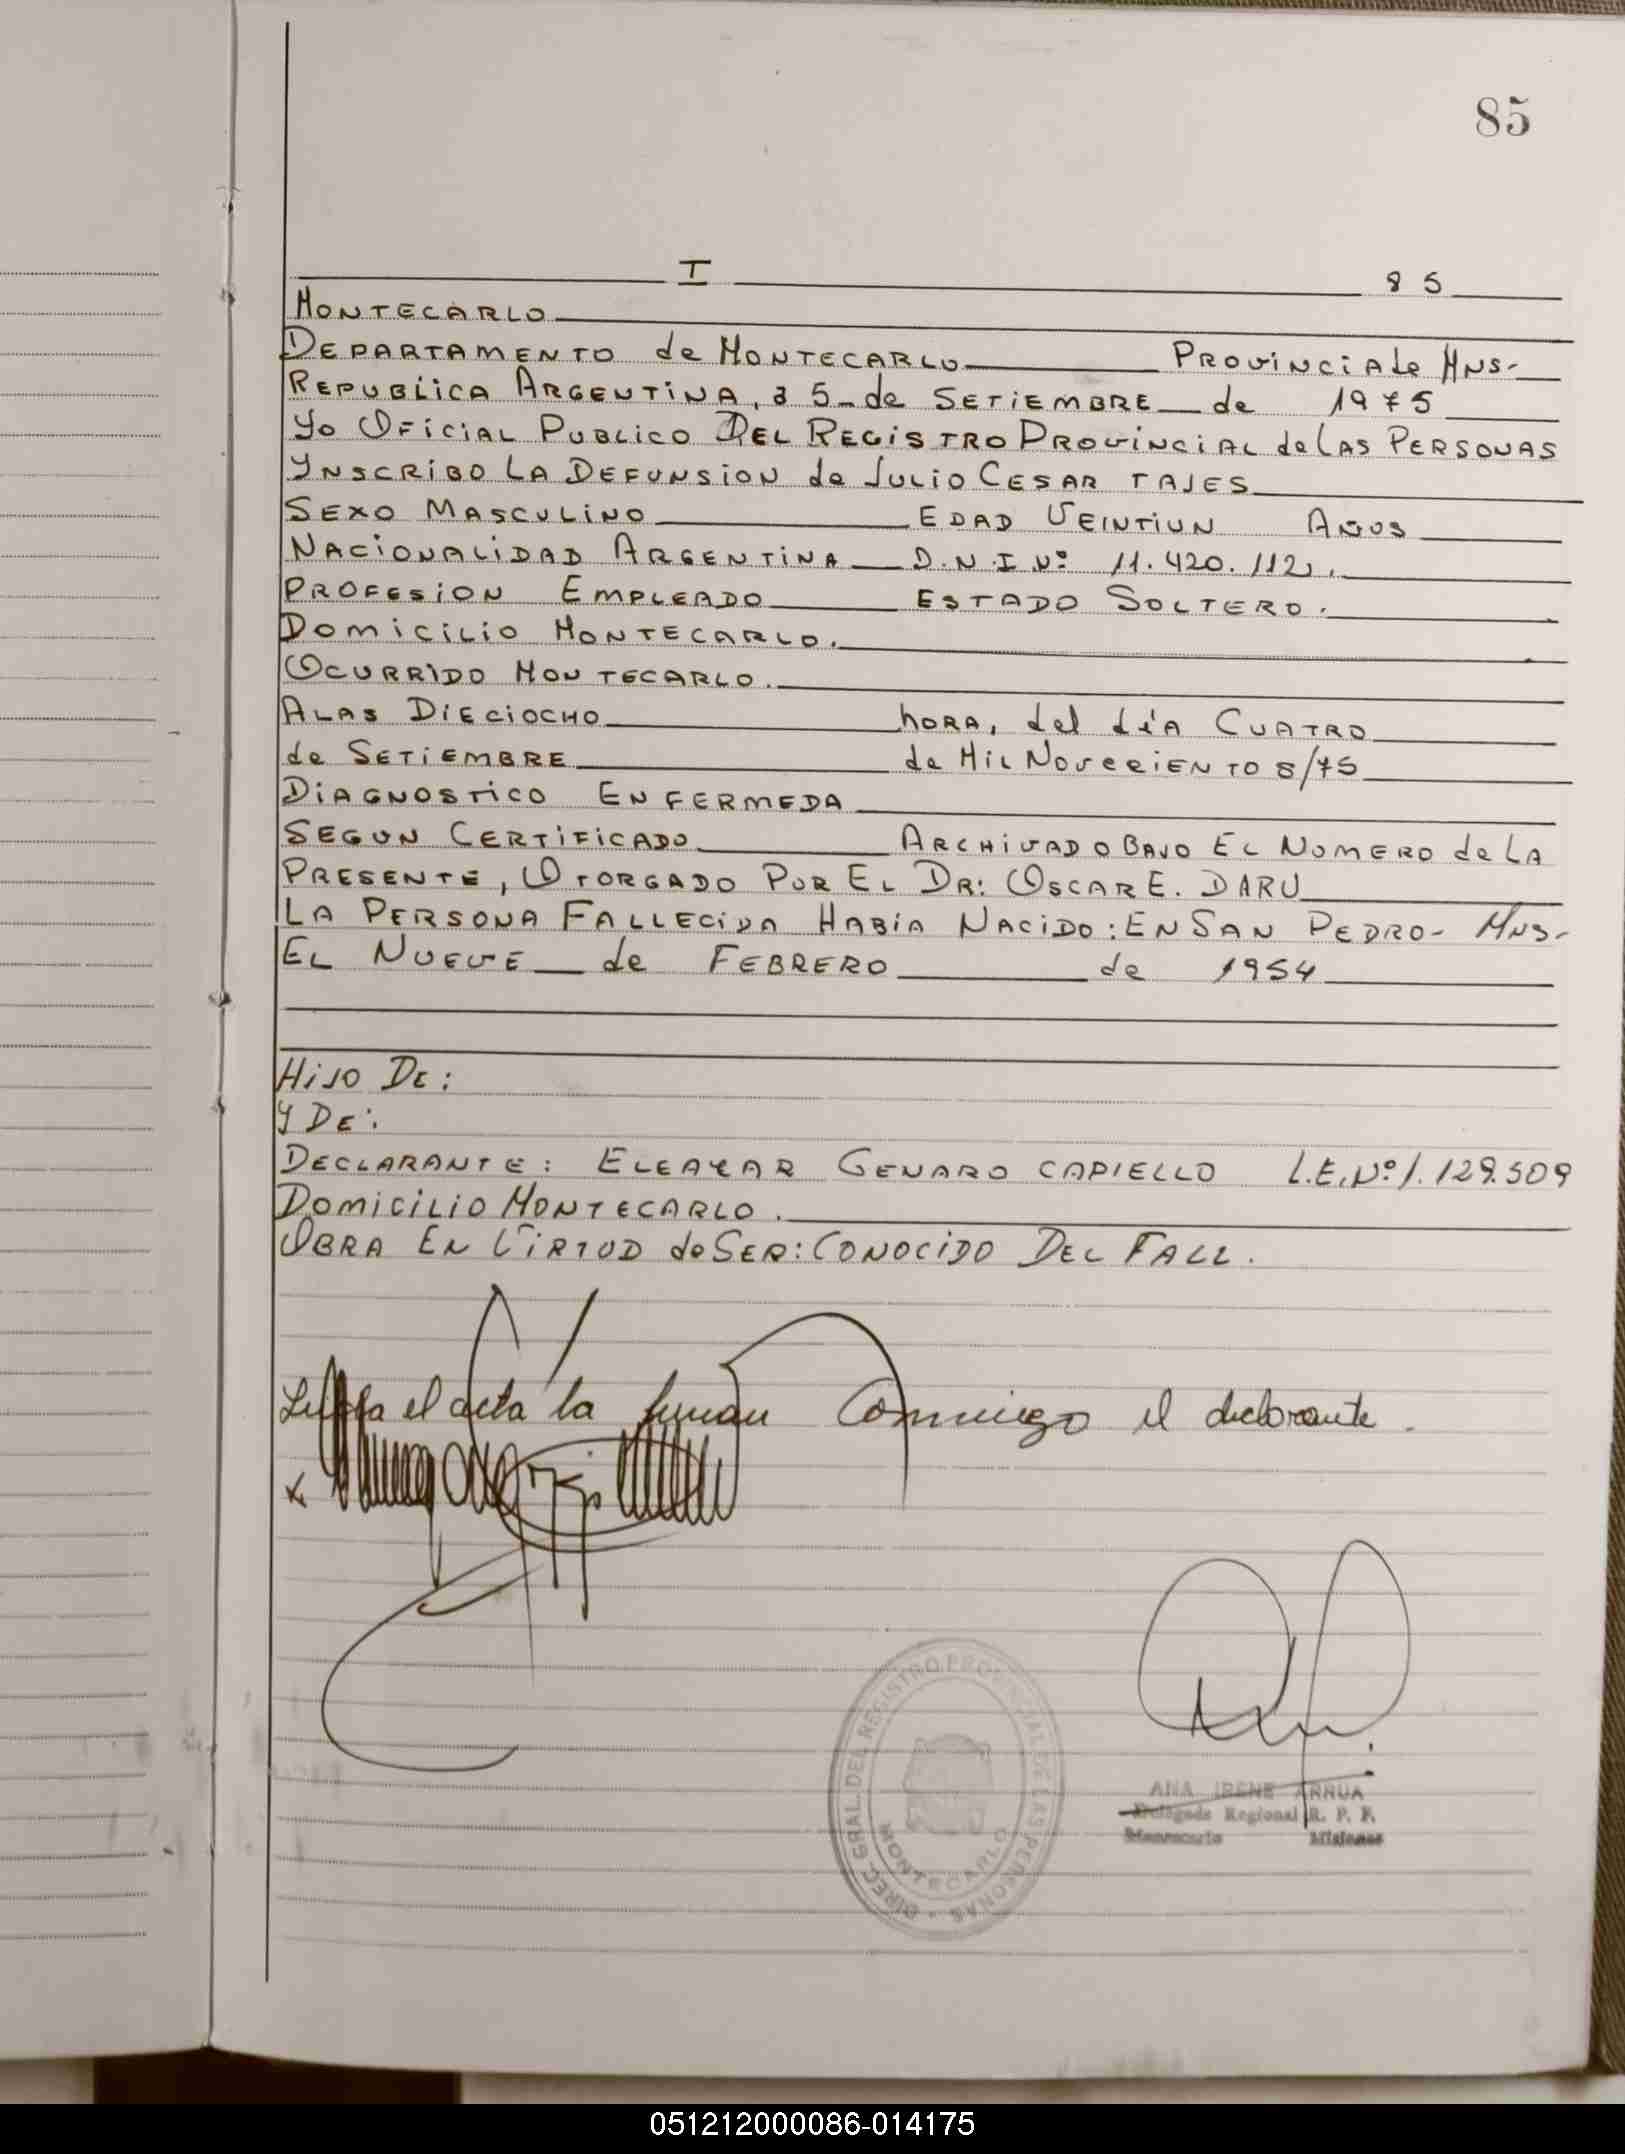 85
I 85
MONTECARLO
DEPARTAMENTO de MONTECARLO PROVINCIA de MNS-
REPUBLICA ARGENTINA, a 5- de SETIEMBRE de 1975
YO OFICIAL PUBLICO DEL REGISTRO PROVINCIAL de LAS PERSONAS
YNSCRIBO LA DEFUNSION de JULIO CESAR TAJES
SEXO MASCULINO EDAD VEINTIUN AÑOS
NACIONALIDAD ARGENTINA D.N.I Nº: 11.420.112.
PROFESION EMPLEADO ESTADO SOLTERO.
DOMICILIO MONTECARLO.
OCURRIDO MONTECARLO.
ALAS DIECIOCHO hORA, del díA CUATRO
de SETIEMBRE de MIL NOVECIENTOS/75
DIAGNOSTICO ENFERMEDA
SEGUN CERTIFICADO ARCHIVADO BAJO EL NUMERO de LA
PRESENTE, OTORGADO POR EL DR: OSCAR E. DARU
LA PERSONA FALLECIDA HABIA NACIDO: EN SAN PEDRO- MNS-
EL NUEVE de FEBRERO de 1954
HIJO DE:
Y DE:
DECLARANTE: ELEAZAR GENARO CAPIELLO L.E. Nº 1.129.509
DOMICILIO MONTECARLO.
OBRA EN VIRTUD de SER: CONOCIDO DEL FALL.
Leída el acta la firman Conmigo el declarante.
x
DIREC. GRAL. DEL REGISTRO PROVINCIAL DE LAS PERSONAS
MONTECARLO
ANA IRENE ARRUA
Delegada Regional R. P. P.
Montecarlo Misiones
051212000086-014175